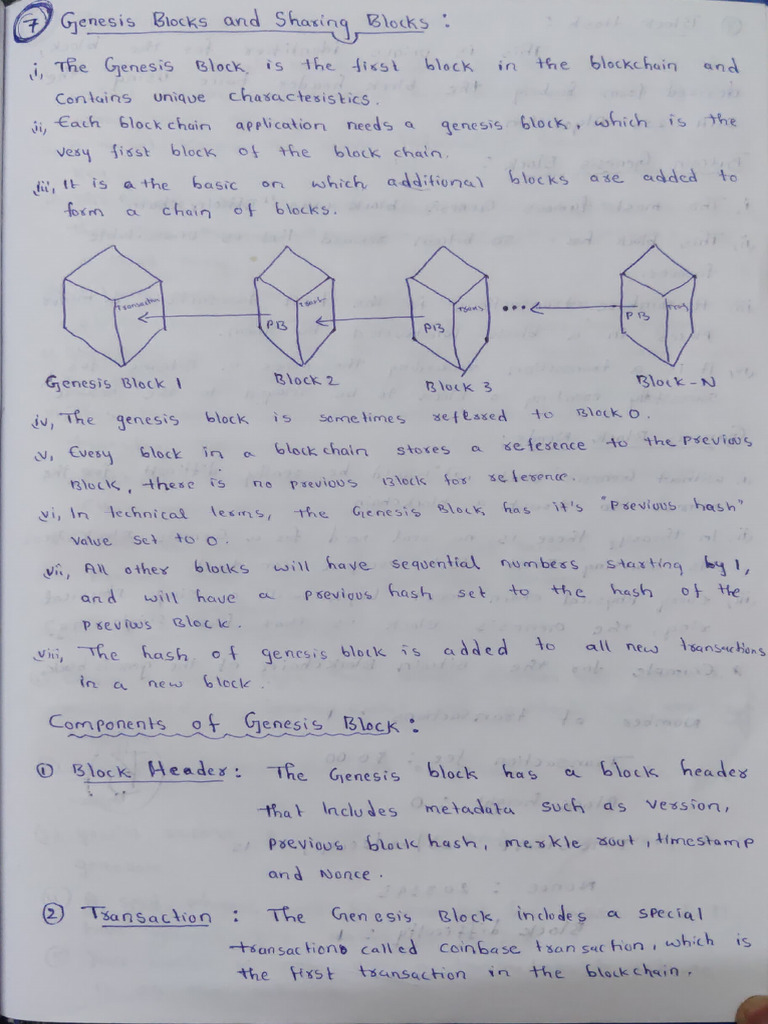 7 Genesis Blocks and Sharing Blocks :
i, The Genesis Block is the first block in the blockchain and
Contains unique characteristics.
ii, Each blockchain application needs a genesis block, which is the
very first block of the block chain.
iii, It is a the basic on which additional blocks are added to
form a chain of blocks.
Transaction PB Transt PB Trans ... PB Trns
Genesis Block 1 Block 2 Block 3 Block-N
iv, The genesis block is sometimes reffered to Block 0.
v, Every block in a blockchain stores a reference to the previous
Block, there is no previous Block for reference.
vi, In technical terms, the Genesis Block has it's "Previous hash"
value set to 0.
vii, All other blocks will have sequential numbers starting by 1,
and will have a previous hash set to the hash of the
previous Block.
viii, The hash of genesis block is added to all new transactions
in a new block.
Components of Genesis Block :
① Block Header : The Genesis block has a block header
that Includes metadata such as version,
previous block hash, merkle rout, timestamp
and Nonce.
② Transaction : The Genesis Block includes a special
transaction called coinbase transaction, which is
the first transaction in the blockchain.